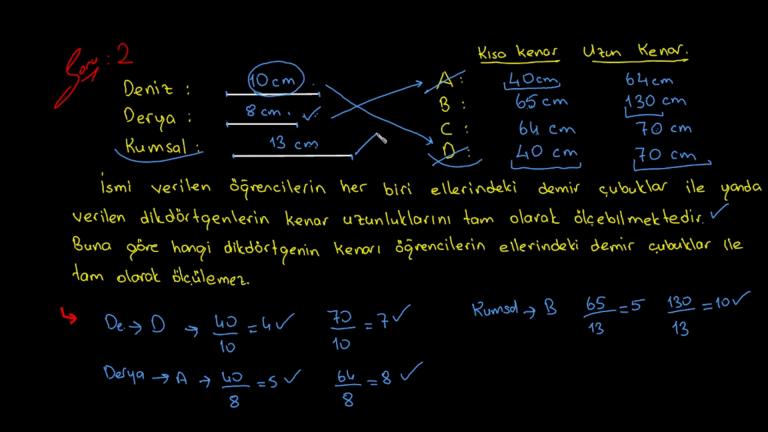 Soru: 2
Kısa Kenar Uzun Kenar.
Deniz : 10 cm A : 40cm 64cm
Derya : 8 cm. B : 65 cm 130 cm
Kumsal : 13 cm C : 64 cm 70 cm
D : 40 cm 70 cm
İsmi verilen öğrencilerin her biri ellerindeki demir çubuklar ile yanda
verilen dikdörtgenlerin kenar uzunluklarını tam olarak ölçebilmektedir.
Buna göre hangi dikdörtgenin kenarı öğrencilerin ellerindeki demir çubuklar ile
tam olarak ölçülemez.
De → D → 40/10 = 4 ✓ 70/10 = 7 ✓ Kumsal → B 65/13 = 5 130/13 = 10 ✓
Derya → A → 40/8 = 5 ✓ 64/8 = 8 ✓